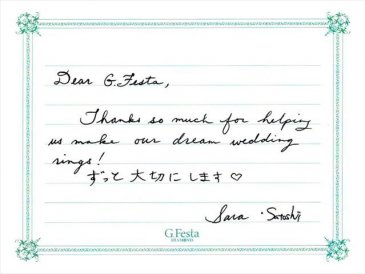 Dear G.Festa,
Thanks so much for helping
us make our dream wedding
rings!
ずっと大切にします♡
Sara ・Satoshi
G.Festa
DIAMOND